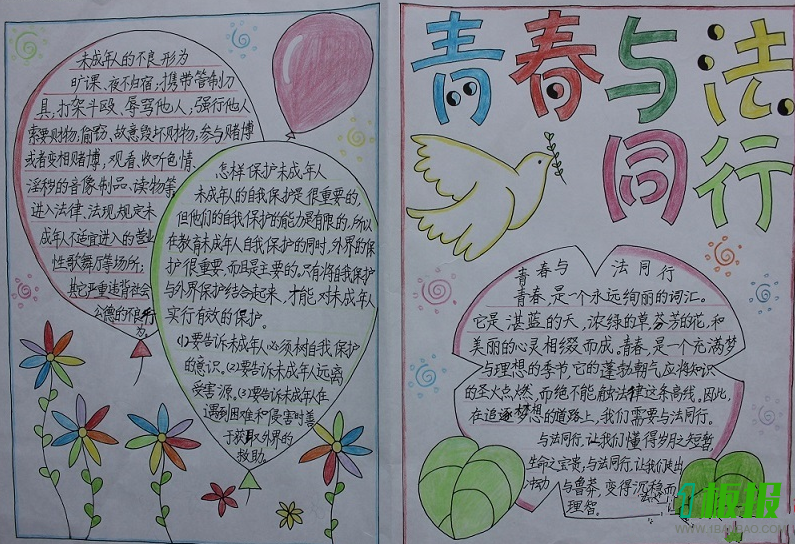 未成年人的不良形为
旷课、夜不归宿,携带管制刀
具,打架斗殴、辱骂他人,强行他人
索要财物,偷野,故意毁坏财物,参与赌博
或者变相赌博,观看、收听色情、
淫秽的音像制品、读物等
进入法律、法规规定未
成年人不适宜进入的营业
性歌舞厅等场所;
其它严重违背社会
公德的不良行
为。
怎样保护未成年人
未成年人的自我保护是很重要的,
但他们的自我保护的能力是有限的,所以
在教育未成年人自我保护的同时,外界的保
护很重要,而且是主要的。只有将自我保护
与外界保护结合起来,才能,对未成年人
实行有效的保护。
(1)要告诉未成年人必须树自我保护
的意识。(2)要告诉未成年人远离
受害源。(3)要告诉未成年人在
遇到困难和侵害时善
于获取外界的
救助。
青春与法
同行
青春与 法同行
青春,是一个永远绚丽的词汇。
它是湛蓝的天,浓绿的草芬芳的花,和
美丽的心灵相缀而成。青春,是一个充满梦
与理想的季节,它的蓬勃朝气应将知识
的圣火点燃,而绝不能触法律这条高线。因此,
在追逐梦想的道路上,我们需要与法同行。
与法同行,让我们懂得岁月之短暂,
生命之宝贵,与法同行,让我们走出
冲动与鲁莽,变得沉稳而
理智。
板报
WWW.IBANBAO.COM